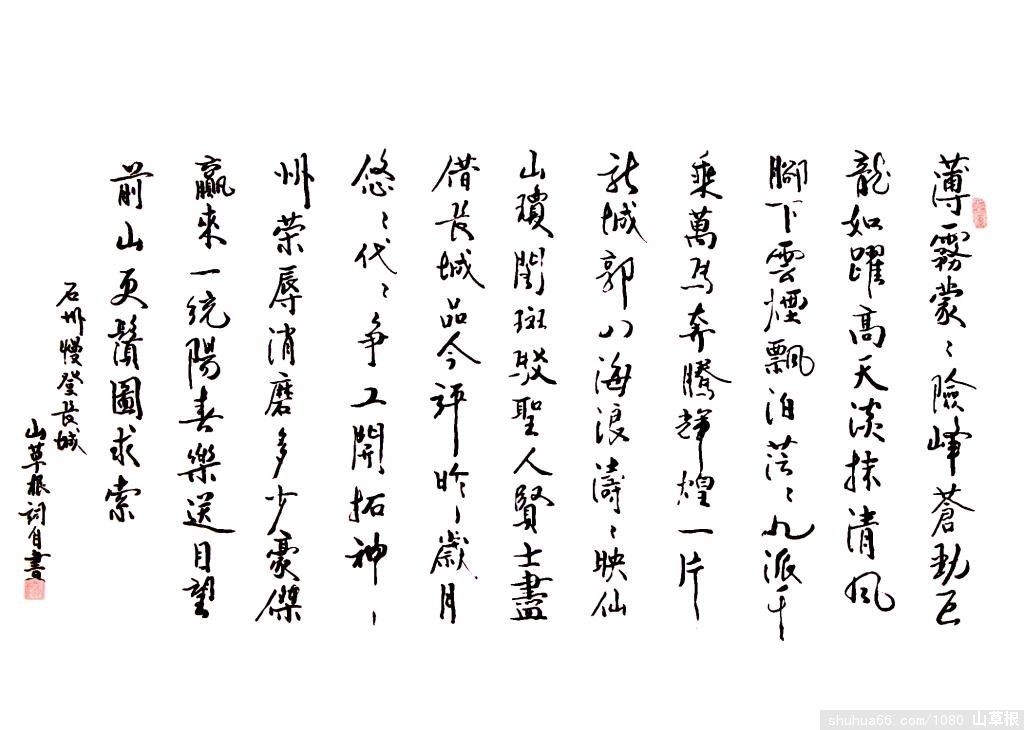 薄霧蒙〻險峰蒼勁巨
龍如躍高天淡抹清風
腳下雲煙飄泊茫〻九派千
乘萬馬奔騰輝煌一片
城郭八海浪濤〻映仙
山瓊閣斑駁聖人賢士盡
借長城品今評昨〻歲月
悠〻代〻爭工開拓神〻
州榮辱消磨多少豪傑
贏來一統陽春樂送目望
前山更鬚圖求索
石州慢登長城
山草根詞自書
shuhua66.com/1080 山草根